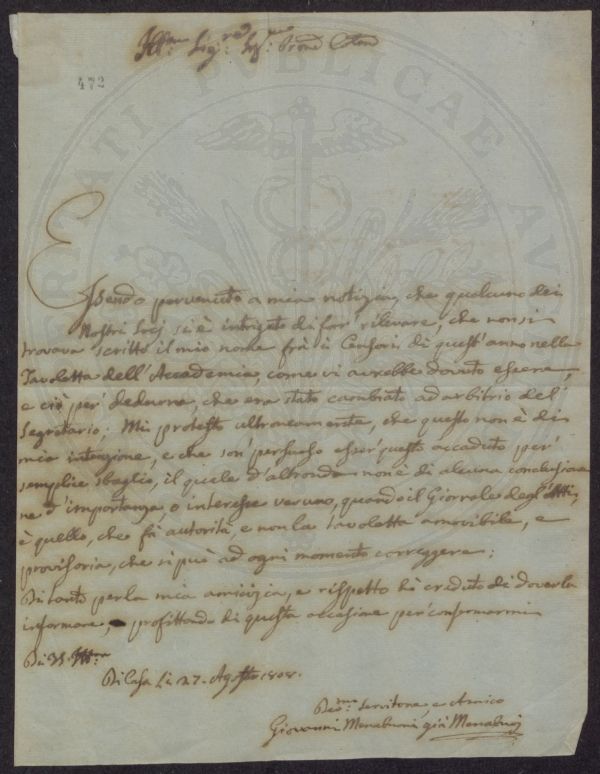 Ill.mo Sig.re Sig.re Pron Colmo
472
Essendo pervenuto a mia notizia, che qualcuno dei
Nostri Socj si è intrigato di far' rilevare, che non si
trovava scritto il mio nome frà i Censori di quest'anno nella
Tavoletta dell'Accademia, come vi avrebbe dovuto essere,
e ciò per' dedurne, che era stato cambiato ad arbitrio del
Segretario; Mi protesto ultroneamente, che questo non è di
mia intenzione, e che son' persuaso esser' questo accaduto per'
semplice sbaglio, il quale d'altronde non è di alcuna conclusione
ne d'importanza, o interesse veruno, quando il Giornale degl'Atti,
è quello, che fà autorità, e non la tavoletta amovibile, e
provisoria, che si può ad ogni momento correggere;
Di tanto per la mia amicizia, e rispetto hò creduto di doverla
informare, profittando di questa occasione per' confermarmi
Di V. S. Ill.ma
Di Casa Li 27. Agosto 1808.
Dev.mo Servitore, e Amico
Giovanni Menabuoni già Menabuoj